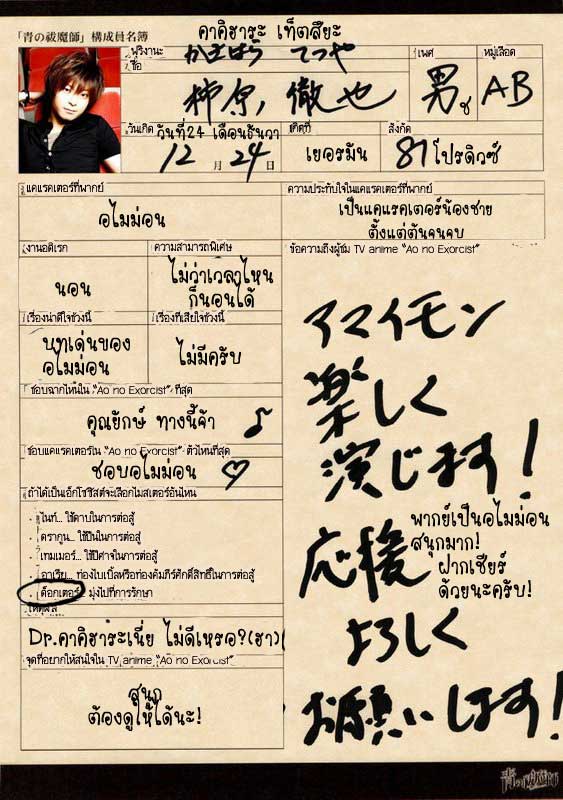 「青の祓魔師」構成員名簿
คาคิฮาระ เท็ตสึยะ
ฟุริงานะ
かきはら てつや
ชื่อ
柿原 徹也
เพศ
男
ช
หมู่เลือด
AB
วันเกิด
วันที่24 เดือนธันวา
12月24日
เกิดที่
เยอรมัน
สังกัด
81โปรดิวซ์
แคแรคเตอร์ที่พากย์
อไมม่อน
ความประทับใจในแคแรคเตอร์ที่พากย์
เป็นแคแรคเตอร์น้องชาย
ตั้งแต่ต้นจนจบ
งานอดิเรก
นอน
ความสามารถพิเศษ
ไม่ว่าเวลาไหน
ก็นอนได้
เรื่องน่าดีใจช่วงนี้
บทเด่นของ
อไมม่อน
เรื่องที่เสียใจช่วงนี้
ไม่มีครับ
ชอบฉากไหนใน "Ao no Exorcist" ที่สุด
คุณยักษ์ ทางนี้จ้า ♪
ชอบแคแรคเตอร์ใน "Ao no Exorcist" ตัวไหนที่สุด
ชอบอไมม่อน ♡
ถ้าได้เป็นเอ็กโซซิสต์จะเลือกไมสเตอร์อันไหน
· ไนท์... ใช้ดาบในการต่อสู้
· ดรากูน... ใช้ปืนในการต่อสู้
· เทมเมอร์... ใช้ปีศาจในการต่อสู้
· อาเรีย... ท่องไบเบิ้ลหรือท่องคัมภีร์ศักดิ์สิทธิ์ในการต่อสู้
· ด็อกเตอร์ มุ่งไปที่การรักษา
เหตุผล
Dr.คาคิฮาระเนี่ย ไม่ดีเหรอ?(ฮา)
จุดที่อยากให้สนใจใน TV anime "Ao no Exorcist"
สนุก
ต้องดูให้ได้นะ!
ข้อความถึงผู้ชม TV anime "Ao no Exorcist"
アマイモン
楽しく
演じます!
応援
よろしく
お願いします!
พากย์เป็นอไมม่อน
สนุกมาก!
ฝากเชียร์
ด้วยนะครับ!
青の祓魔師